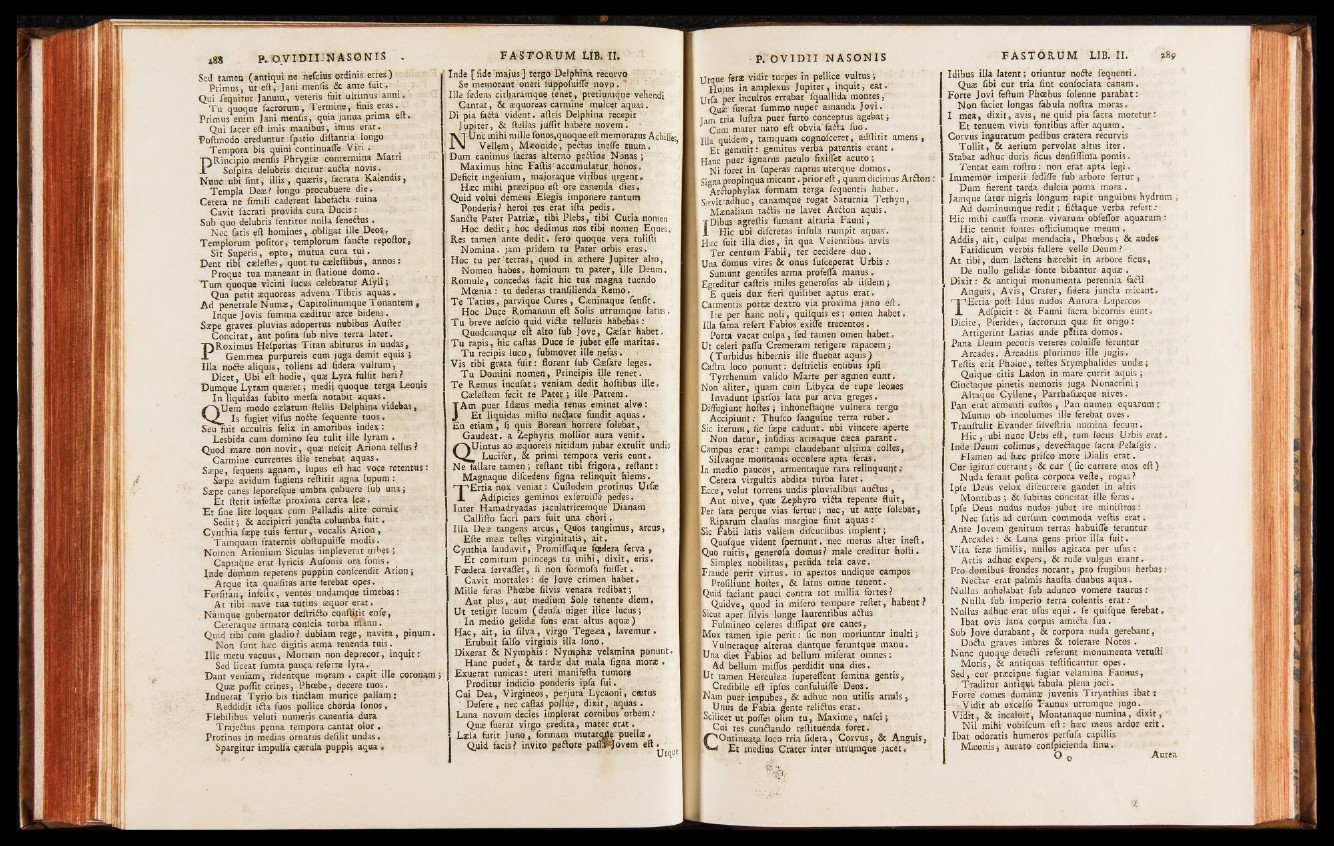 288 P. OVIDII NASONIS
Sed tamen (antiqui ne nescius ordinis erres)
Primus, ut est, Jani mensis & ante fuit.
Qui sequitur Janum, veteris fuit ultimus anni.
Tu quoque sacrorum, Termine, finis eras.
Primus enim Jani mensis, quia janua prima est.
Qui sacer est imis manibus, imus erat.
Postmodo creduntur spatio distantia longo
Tempora bis quini continuasse Viri.
PRincipio mensis Phrygiæ contermina Matri
Sospita delubris dicitur aucta novis.
Nunc ubi sint, illis, quæris, sacrata Kalendis,
Templa Deæ? longo procubuere die.
Cetera ne simili caderent labefacta ruina
Cavit sacrati provida cura Ducis:
Sub quo delubris sentitur nulla senectus.
Nec satis est homines, obligat ille Deos.
Templorum positor, templorum sancte repostor,
Sit Superis, opto, mutua cura tui.
Dent tibi cælestes, quot tu cælestibus, annos:
Proque tua maneant in statione domo.
Tum quoque vicini lucus celebratur Asyli;
Qua petit æquoreas advena Tibris aquas.
Ad penetrale Numæ, Capitolinumque Tonantem,
Inque Jovis summa cæditur arce bidens.
Sæpe graves pluvias adopertus nubibus Auster
Concitat, aut posita sub nive terra latet.
PRoximus Hesperias Titan abiturus in undas,
Gemmea purpureis cum juga demit equis;
Illa nocte aliquis, tollens ad sidera vultum,
Dicet, Ubi est hodie, quæ Lyra fulsit heri?
Dumque Lyram quæret; medii quoque terga Leonis
In liquidas subito mersa notabit aquas.
QUem modo cælatum stellis Delphina videbas,
Is fugiet visus nocte sequente tuos.
Seu fuit occultis felix in amoribus index:
Lesbida cum domino seu tulit ille lyram.
Quod mare non novit, quæ nescit Ariona tellus?
Carmine currentes ille tenebat aquas.
Sæpe, sequens agnam, lupus est hac voce retentus:
Sæpe avidum fugiens restitit agna lupum:
Sæpe canes leporesque umbra cubuere sub una;
Et stetit infestæ proxima cerva leæ.
Et sine lite loquax cum Palladis alite cornix
Sedit; & accipitri juncta columba fuit.
Cynthia sæpe tuis fertur, vocalis Arion,
Tamquam fraternis obstupuisse modis.
Nomen Arionium Siculas impleverat urbes;
Captaque erat lyricis Ausonis ora sonis.
Inde domum repetens puppim conscendit Arion;
Atque ita quæsitas arte ferebat opes.
Forsitan, infelix, ventos undamque timebas:
At tibi nave tua tutius æquor erat.
Namque gubernator destricto constitit ense,
Ceteraque armata conscia turba manu.
Quid tibi cum gladio? dubiam rege, navita, pinum.
Non sunt hæc digitis arma tenenda tuis.
Ille metu vacuus, Mortem non deprecor, inquit:
Sed liceat sumta pauca referre lyra.
Dant veniam, ridentque moram. capit ille coronam;
Quæ possit crines, Phœbe, decere tuos.
Induerat Tyrio bis tinctam murice pallam:
Reddidit icta suos pollice chorda sonos.
Flebilibus veluti numeris canentia dura
Trajectus penna tempora cantat olor.
Protinus in medias ornatus desilit undas.
Spargitur impulsa cærula puppis aqua.
FASTORUM LIB. II.
Inde [fide majus] tergo Delphina recurvo
Se memorant oneri supposuisse novo.
Ille sedens citharamque tenet, pretiumque vehendi
Cantat, & æquoreas carmine mulcet aquas.
Di pia facta vident. astris Delphina recepit
Jupiter, & stellas jussit habere novem.
NUnc mihi mille sonos, quoque est memoratus Achilles,
Vellem, Mæonide, pectus inesse tuum.
Dum canimus sacras alterno pectine Nonas;
Maximus hinc Fastis accumulatur honos.
Deficit ingenium, majoraque viribus urgent.
Hæc mihi præcipuo est ore canenda dies.
Quid volui demens Elegis imponere tantum
Ponderis? heroi res erat ista pedis.
Sancte Pater Patriæ, tibi Plebs, tibi Curia nomen
Hoc dedit; hoc dedimus nos tibi nomen Eques.
Res tamen ante dedit. sero quoque vera tulisti
Nomina. jam pridem tu Pater orbis eras.
Hoc tu per terras, quod in æthere Jupiter alto,
Nomen habes. hominum tu pater, ille Deum.
Romule, concedas facit hic tua magna tuendo
Mœnia: tu dederas transilienda Remo.
Te Tatius, parvique Cures, Cæninaque sensit.
Hoc Duce Romanum est Solis utrumque latus.
Tu breve nescio quid victæ telluris habebas:
Quodcumque est alto sub Jove, Cæsar habet.
Tu rapis, hic castas Duce se jubet esse maritas.
Tu recipis luco, submovet ille nefas.
Vis tibi grata fuit: florent sub Cæsare leges.
Tu Domini nomen, Principis ille tenet.
Te Remus incusat; veniam dedit hostibus ille.
Cælestem fecit te Pater; ille Patrem.
JAm puer Idæus media tenus eminet alvo:
Et liquidas misto nectare fundit aquas.
En etiam, si quis Borean horrere solebat,
Gaudeat. a Zephyris mollior aura venit.
QUintus ab æquoreis nitidum jubar extulit undis
Lucifer, & primi tempora veris eunt.
Ne fallare tamen; restant tibi frigora, restant:
Magnaque discedens signa reliquit hiems.
TErtia nox veniat: Custodem protinus Ursæ
Adspicies geminos exseruisse pedes.
Inter Hamadryadas jaculatricemque Dianam
Callisto sacri pars fuit una chori.
Illa Deæ tangens arcus, Quos tangimus, arcus,
Este meæ testes virginitatis, ait.
Cynthia laudavit, Promissaque fœdera serva,
Et comitum princeps tu mihi, dixit, eris.
Fœdera servasset, si non formosa fuisset.
Cavit mortales: de Jove crimen habet.
Mille feras Phœbe silvis venata redibat;
Aut plus, aut medium Sole tenente diem.
Ut tetigit lucum (densa niger ilice lucus;
In medio gelidæ fons erat altus aquæ)
Hac, ait, in silva, virgo Tegeæa, lavemur.
Erubuit falso virginis illa sono.
Dixerat & Nymphis: Nymphæ velamina ponunt.
Hanc pudet, & tardæ dat mala signa moræ.
Exuerat tunicas: uteri manifesta tumore
Proditur indicio ponderis ipsa sui.
Cui Dea, Virgineos, perjura Lycaoni, cœtus
Desere, nec castas pollue, dixit, aquas.
Luna novum decies implerat cornibus orbem:
Quæ fuerat virgo credita, mater erat.
Læsa furit Juno, formam mutatque puellæ.
Quid facis? invito pectore passa Jovem est.
Utque
P. OVIDII NASONIS
Utque feræ vidit turpes in pellice vultus;
Hujus in amplexus Jupiter, inquit, eat.
Ursa per incultos errabat squallida montes,
Quæ fuerat summo nuper amanda Jovi.
Jam tria lustra puer furto conceptus agebat;
Cum mater nato est obvia facta suo.
Illa quidem, tamquam cognosceret, adstitit amens,
Et gemuit: gemitus verba parentis erant.
Hanc puer ignarus jaculo fixisset acuto;
Ni foret in superas raptus uterque domos.
Signa propinqua micant. prior est, quam dicimus Arcton:
Arctophylax formam terga sequentis habet.
Sævit adhuc, canamque rogat Saturnia Tethyn,
Mænaliam tactis ne lavet Arcton aquis.
IDibus agrestis fumant altaria Fauni,
Hic ubi discretas insula rumpit aquas.
Hæc fuit illa dies, in qua Veientibus arvis
Ter centum Fabii, ter cecidere duo.
Una domus vires & onus susceperat Urbis:
Sumunt gentiles arma professa manus.
Egreditur castris miles generosus ab iisdem;
E queis dux fieri quilibet aptus erat.
Carmentis portæ dextro via proxima jano est.
Ire per hanc noli, quisquis es; omen habet.
Illa fama refert Fabios exisse trecentos.
Porta vacat culpa, sed tamen omen habet.
Ut celeri passu Cremeram tetigere rapacem;
(Turbidus hibernis ille fluebat aquis)
Castra loco ponunt: destrictis ensibus ipsi
Tyrrhenum valido Marte per agmen eunt.
Non aliter, quam cum Libyca de rupe leones
Invadunt sparsos lata per arva greges.
Diffugiunt hostes; inhonestaque vulnera tergo
Accipiunt: Thusco sanguine terra rubet.
Sic iterum, sic sæpe cadunt. ubi vincere aperte
Non datur, insidias armaque cæca parant.
Campus erat: campi claudebant ultima colles,
Silvaque montanas occulere apta feras.
In medio paucos, armentaque rara relinquunt:
Cetera virgultis abdita turba latet.
Ecce, velut torrens undis pluvialibus auctus,
Aut nive, quæ Zephyro victa tepente fluit,
Per sata perque vias fertur; nec, ut ante solebat,
Riparum clausas margine finit aquas:
Sic Fabii latis vallem discursibus implent;
Quosque vident spernunt. nec metus alter inest.
Quo ruitis, generosa domus? male creditur hosti.
Simplex nobilitas, perfida tela cave.
Fraude perit virtus. in apertos undique campos
Prosiliunt hostes, & latus omne tenent.
Quid faciant pauci contra tot millia fortes?
Quidve, quod in misero tempore restet, habent?
Sicut aper silvis longe laurentibus actus
Fulmineo celeres dissipat ore canes,
Mox tamen ipse perit: sic non moriuntur inulti;
Vulneraque alterna dantque feruntque manu.
Una dies Fabios ad bellum miserat omnes:
Ad bellum missos perdidit una dies.
Ut tamen Herculeæ superessent semina gentis,
Credibile est ipsos consuluisse Deos.
Nam puer impubes, & adhuc non utilis armis,
Unus de Fabia gente relictus erat.
Scilicet ut posses olim tu, Maxime, nasci;
Cui res cunctando restituenda foret.
COntinuata loco tria sidera, Corvus, & Anguis,
Et medius Crater inter utrumque jacet.
FASTORUM LIB. II. 289
Idibus illa latent; oriuntur nocte sequenti.
Quæ sibi cur tria sint consociata canam.
Forte Jovi festum Phœbus solenne parabat:
Non faciet longas fabula nostra moras.
I mea, dixit, avis, ne quid pia sacra moretur:
Et tenuem vivis fontibus affer aquam.
Corvus inauratum pedibus cratera recurvis
Tollit, & aerium pervolat altus iter.
Stabat adhuc duris ficus densissima pomis.
Tentat eam rostro: non erat apta legi.
Immemor imperii sedisse sub arbore fertur,
Dum fierent tarda dulcia poma mora.
Jamque satur nigris longum rapit unguibus hydrum;
Ad dominumque redit; fictaque verba refert:
Hic mihi caussa moræ vivarum obsessor aquarum:
Hic tenuit fontes officiumque meum.
Addis, ait, culpæ mendacia, Phœbus; & audes
Fatidicum verbis fallere velle Deum?
At tibi, dum lactens hærebit in arbore ficus,
De nullo gelidæ fonte bibantur aquæ.
Dixit: & antiqui monumenta perennia facti
Anguis, Avis, Crater, sidera juncta micant.
TErtia post Idus nudos Aurora Lupercos
Adspicit: & Fauni sacra bicornis eunt.
Dicite, Pierides, sacrorum quæ sit origo:
Attigerint Latias unde petita domos.
Pana Deum pecoris veteres coluisse feruntur
Arcades. Arcadiis plurimus ille jugis.
Testis erit Pholoe, testes Stymphalides undæ;
Quique citis Ladon in mare currit aquis;
Cinctaque pinetis nemoris juga Nonacrini;
Altaque Cyllene, Parrhasiæque nives.
Pan erat armenti custos, Pan numen equarum:
Munus ob incolumes ille ferebat oves.
Transtulit Evander silvestria numina secum.
Hic, ubi nunc Urbs est, tum locus Urbis erat.
Inde Deum colimus, devectaque sacra Pelasgis.
Flamen ad hæc prisco more Dialis erat.
Cur igitur currant; & cur (sic currere mos est)
Nuda ferant posita corpora veste, rogas?
Ipse Deus velox discurrere gaudet in altis
Montibus; & subitas concitat ille feras.
Ipse Deus nudus nudos jubet ire ministros:
Nec satis ad cursum commoda vestis erat.
Ante Jovem genitum terras habuisse feruntur
Arcades: & Luna gens prior illa fuit.
Vita feræ similis, nullos agitata per usus:
Artis adhuc expers, & rude vulgus erant.
Pro domibus frondes norant, pro frugibus herbas:
Nectar erat palmis hausta duabus aqua.
Nullus anhelabat sub adunco vomere taurus:
Nulla sub imperio terra colentis erat:
Nullus adhuc erat usus equi. se quisque ferebat.
Ibat ovis lana corpus amicta sua.
Sub Jove durabant, & corpora nuda gerebant,
Docta graves imbres & tolerare Notos.
Nunc quoque detecti referunt monumenta vetusti
Moris, & antiquas testificantur opes.
Sed, cur præcipue fugiat velamina Faunus,
Traditur antiqui fabula plena joci.
Forte comes dominæ juvenis Tirynthius ibat:
Vidit ab excelso Faunus utrumque jugo.
Vidit, & incaluit, Montanaque numina, dixit,
Nil mihi vobiscum est: hæc meus ardor erit.
Ibat odoratis humeros perfusa capillis
Mæonis, aurato conspicienda sinu.
O o Aurea